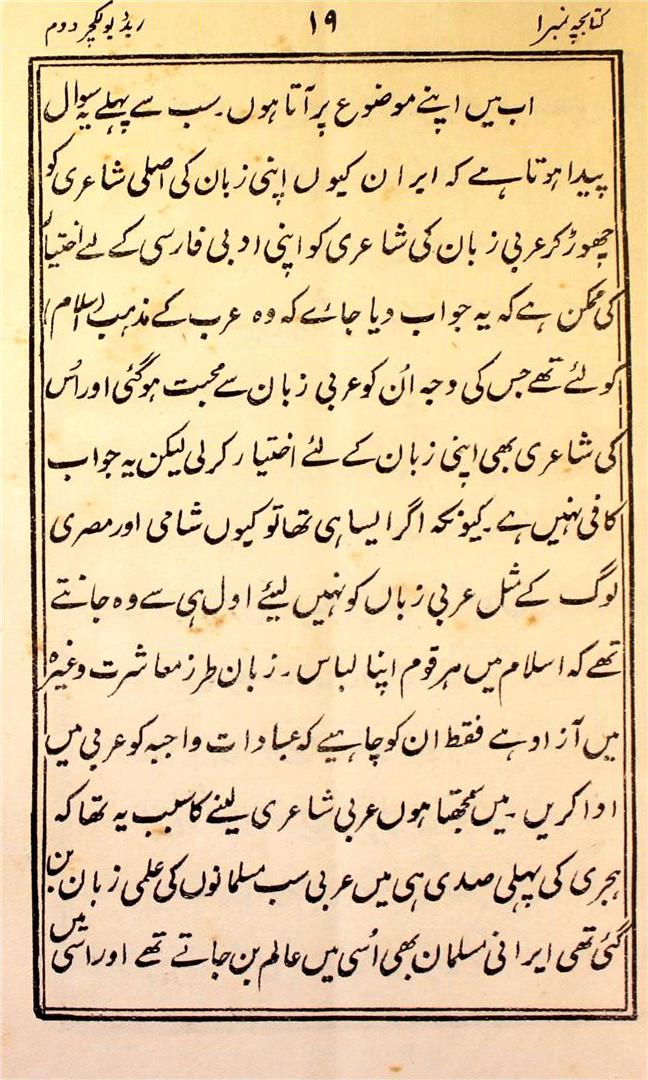 کتابچہ نمبر۱ ۱۹ ریڈیو لکچر دوم
اب میں اپنے موضوع پر آتا ہوں۔ سب سے پہلے یہ سوال
پیدا ہوتا ہے کہ ایران کیوں اپنی زبان کی اصلی شاعری کو
چھوڑ کر عربی زبان کی شاعری کو اپنی ادبی فارسی کے لئے اختیار
کی ممکن ہے کہ یہ جواب دیا جائے کہ وہ عرب کے مذہب (اسلام)
کو لئے تھے جس کی وجہ اُن کو عربی زبان سے محبت ہوگئی اور اُس
کی شاعری بھی اپنی زبان کے لئے اختیار کرلی لیکن یہ جواب
کافی نہیں ہے۔ کیونکہ اگر ایسا ہی تھا تو کیوں شامی اور مصری
لوگ کے مثل عربی زباں کو نہیں لیئے اول ہی سے وہ جانتے
تھے کہ اسلام میں ہر قوم اپنا لباس۔ زبان طرز معاشرت وغیرہ
میں آزاد ہے فقط ان کو چاہیے کہ عبادات واجبہ کو عربی میں
ادا کریں۔ میں سمجھتا ہوں عربی شاعری لینے کا سبب یہ تھا کہ
ہجری کی پہلی صدی ہی میں عربی سب مسلمانوں کی علمی زبان بن
گئی تھی ایرانی مسلمان بھی اُسی میں عالم بن جاتے تھے اور اسی میں